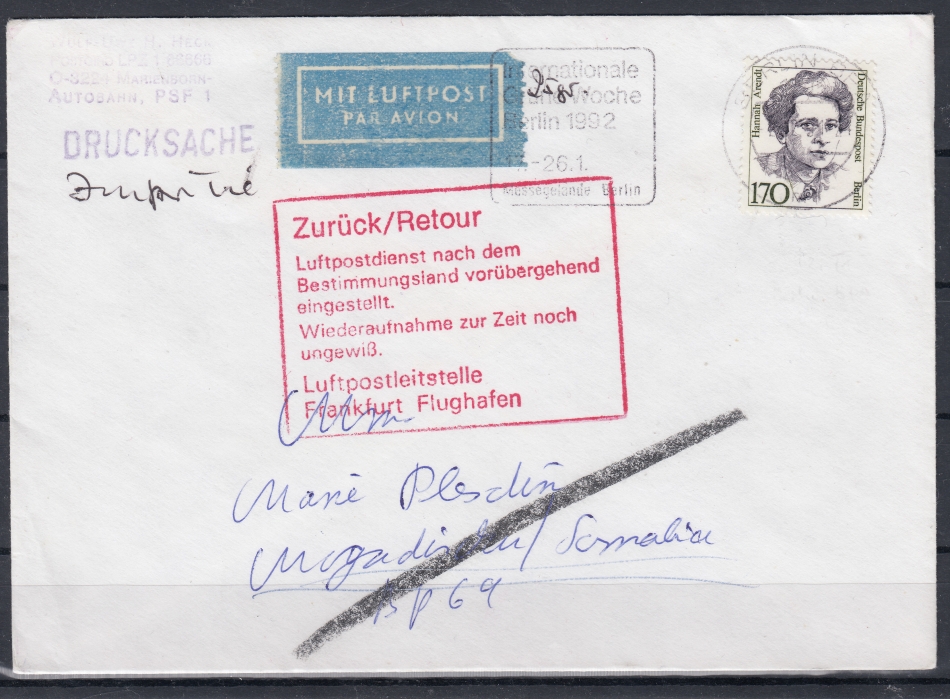 O-3224 MARIENBORN-
AUTOBAHN, PSF 1
DRUCKSACHE
MIT LUFTPOST
PAR AVION
Internationale
Grüne Woche
Berlin 1992
-26.1.
Messegelände Berlin
Hannah Arendt
Deutsche Bundespost Berlin
170
Zurück/Retour
Luftpostdienst nach dem
Bestimmungsland vorübergehend
eingestellt.
Wiederaufnahme zur Zeit noch
ungewiß.
Luftpostleitstelle
Frankfurt Flughafen
Marie
Somalia
BP 69